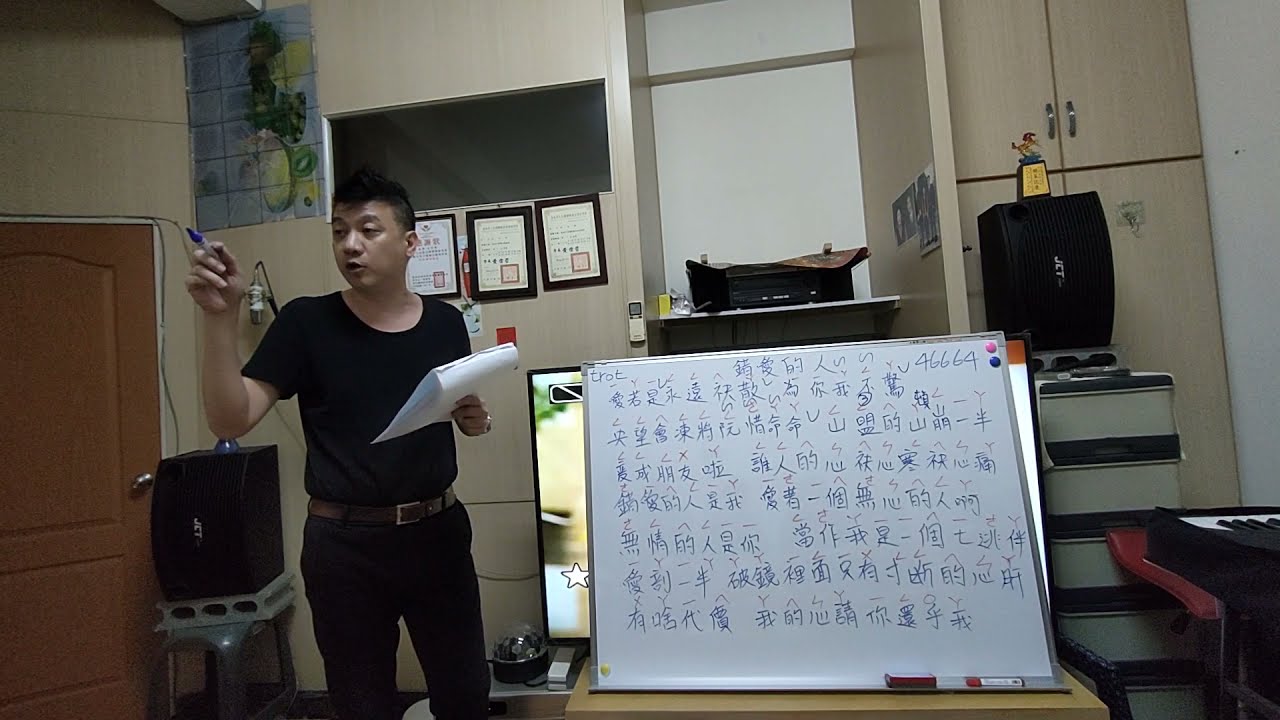 trot 錯愛的人 46664
愛若是永遠袂散 為你我不驚賴山一
央望會凍將阮惜命命 山盟的山崩一半
變成朋友啦 誰人的心袂心寒袂心痛
錯愛的人是我 愛著一個無心的人啊
無情的人是你 當作我是一個七逃伴
愛到一半 破鏡裡面只有寸斷的心肝
有啥代價 我的心請你還乎我
JCT
JCT